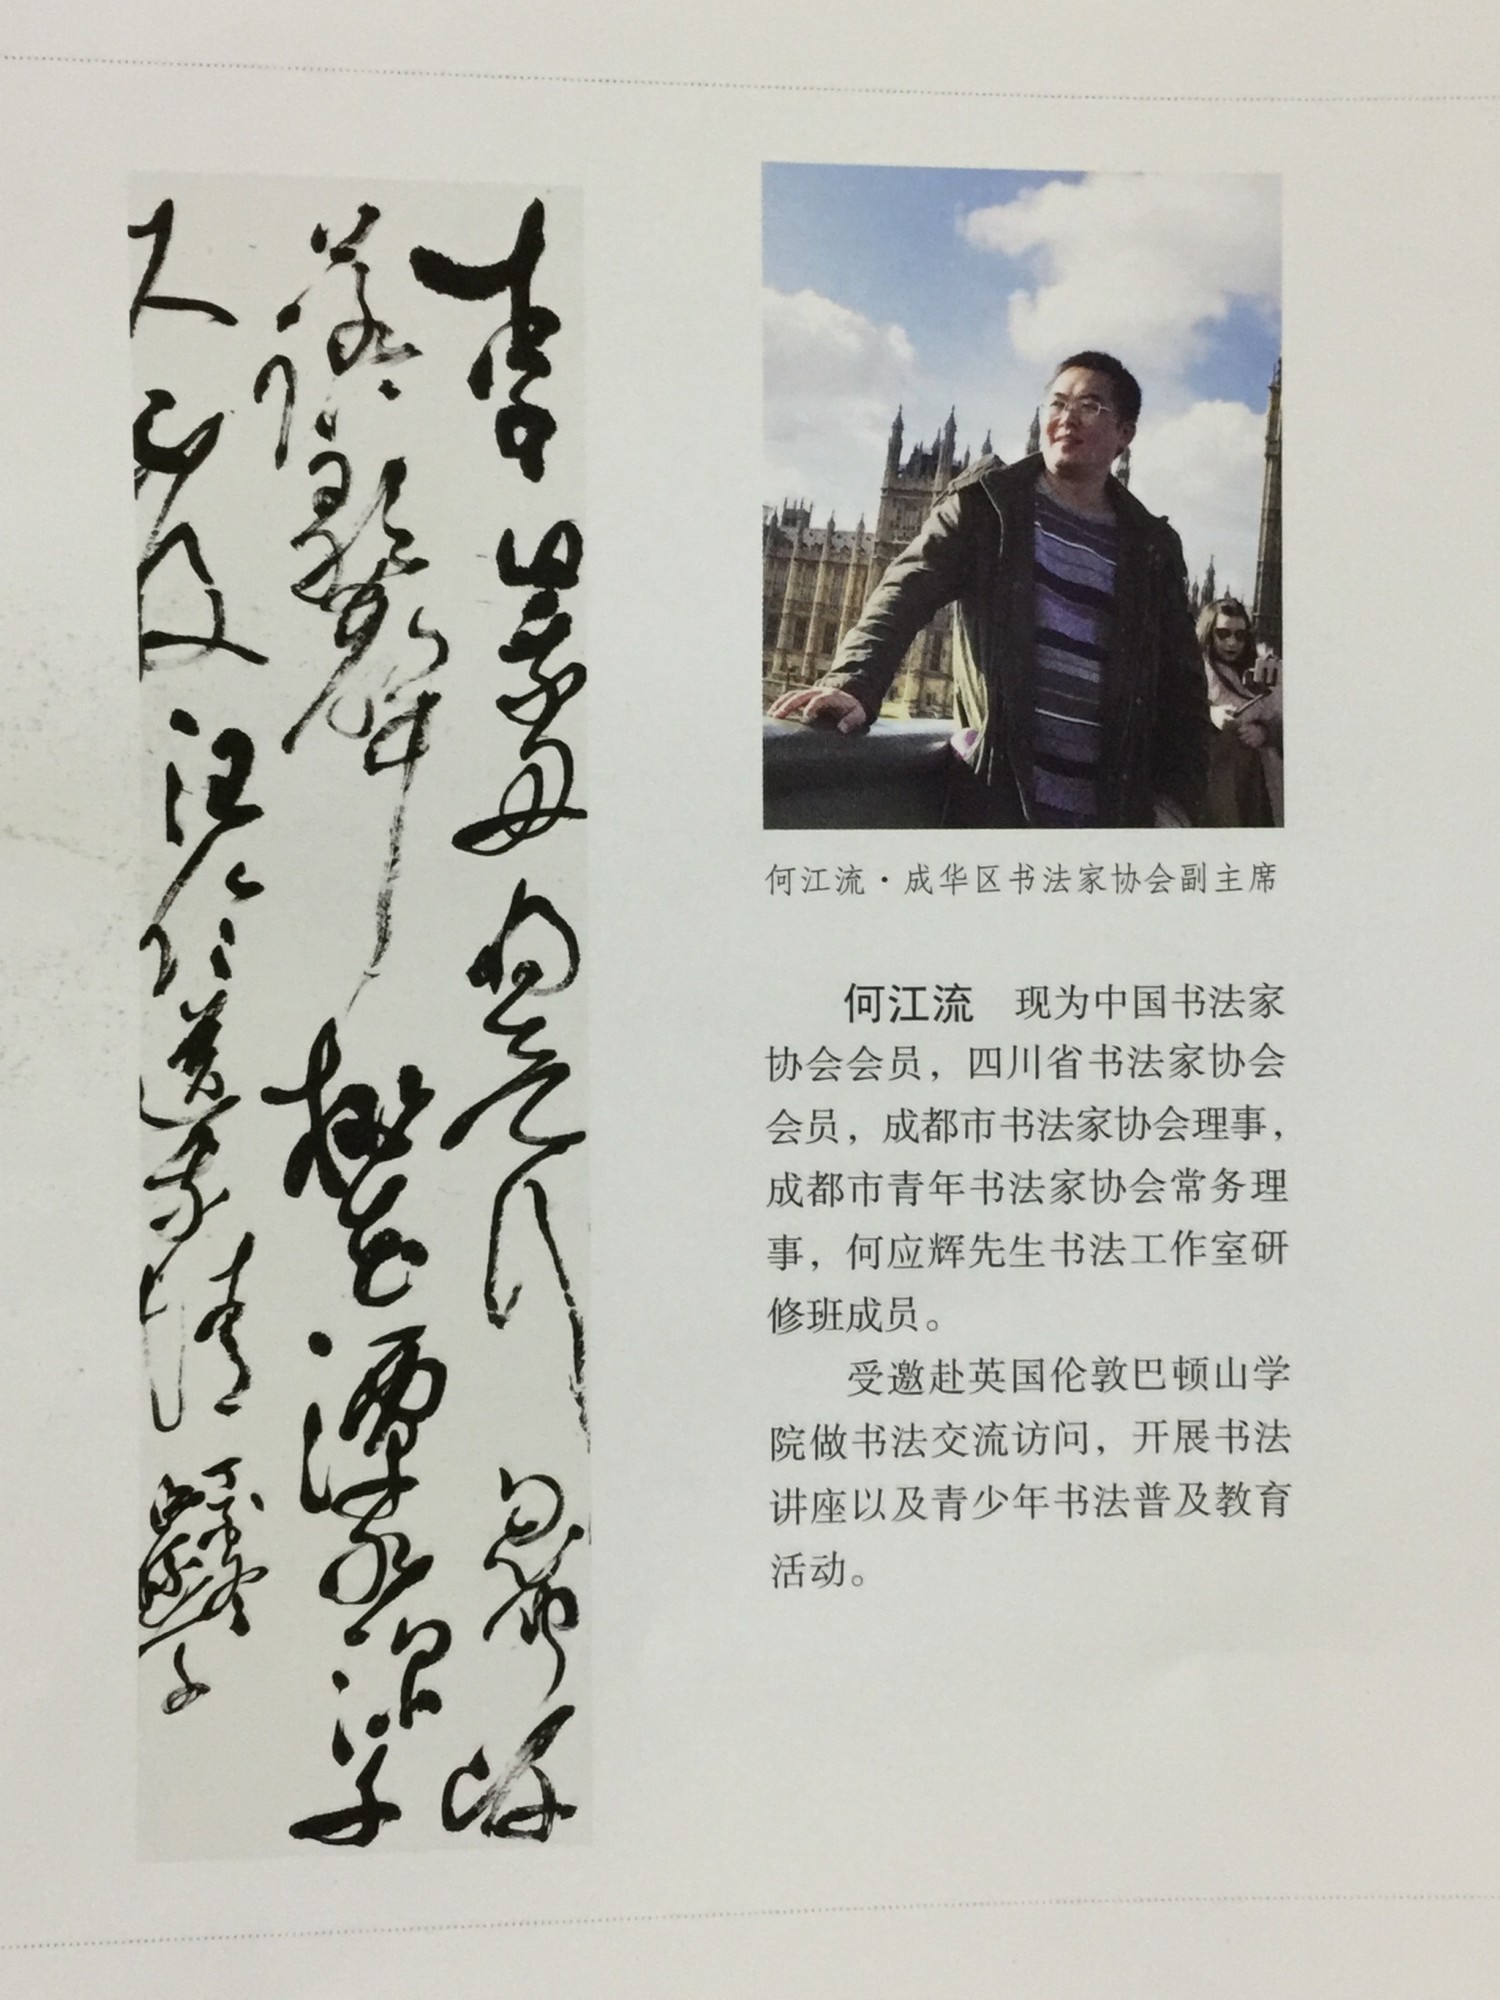 李白乘舟將欲行忽聞岸
上踏歌聲桃花潭水深千
尺不及汪倫送我情
何江流·成华区书法家协会副主席
何江流 现为中国书法家
协会会员，四川省书法家协会
会员，成都市书法家协会理事，
成都市青年书法家协会常务理
事，何应辉先生书法工作室研
修班成员。
受邀赴英国伦敦巴顿山学
院做书法交流访问，开展书法
讲座以及青少年书法普及教育
活动。